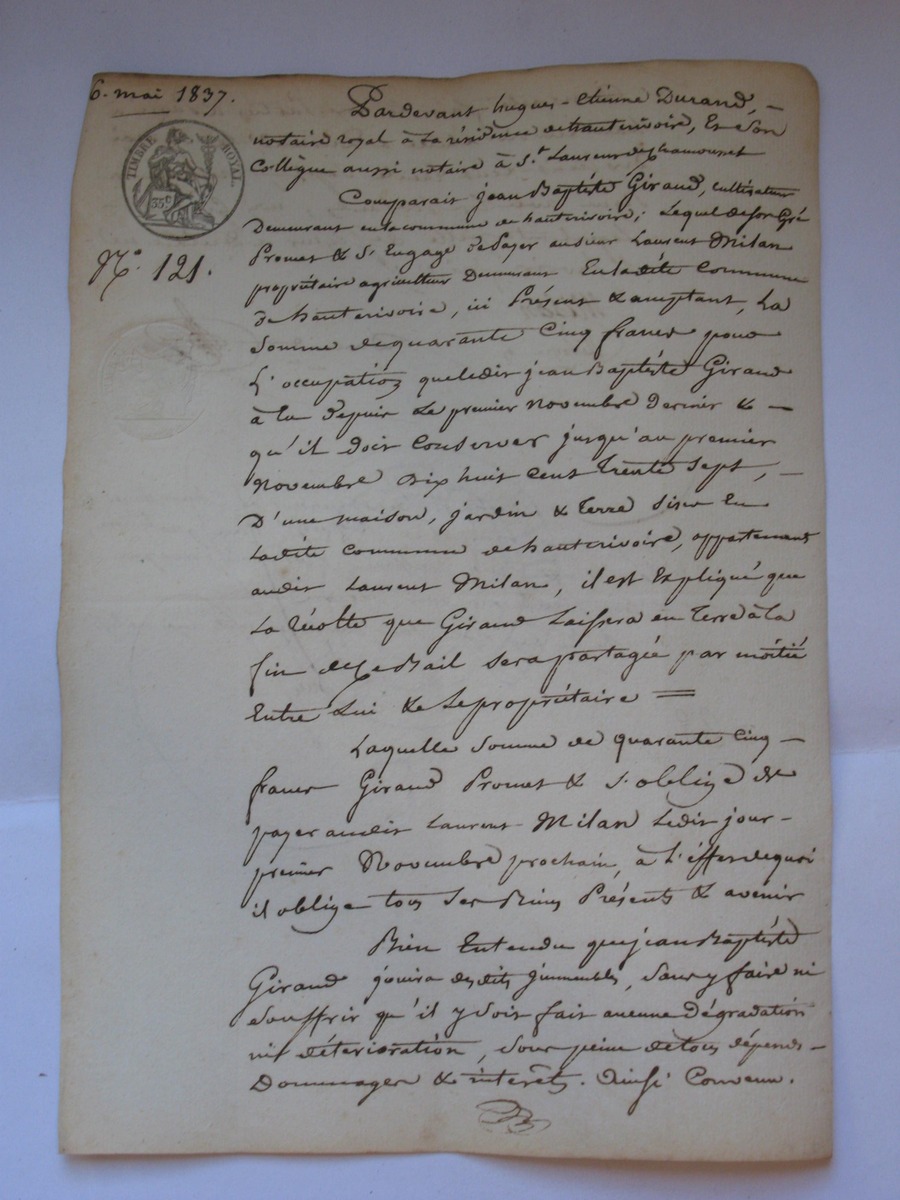 6. mai 1837.
TIMBRE ROYAL.
35c
No. 121.
Pardevant hugues-Etienne Durand, –
notaire royal à La résidence de hauterivoire, Et Son
Collègue aussi notaire à St. Laurent de Chamousset
Comparait jean Baptiste Giraud, cultivateur
Demeurant en la commune de hauterivoire; Lequel de Son Gré
Promet & S'Engage De Payer au sieur Laurent Milan
propriétaire agriculteur Demeurant En ladite Commune
De hauterivoire, ici Présent & acceptant, La
Somme de quarante Cinq francs pour
L'occupation que ledit jean Baptiste Giraud
à Eu depuis Le premier novembre Dernier & –
qu'il doit Conserver jusqu'au premier
Novembre Dix huit Cent Trente Sept, –
D'une maison, jardin & Terre Sises En
Ladite Commune de hauterivoire, appartenant
audit Laurent Milan, il est Expliqué que
La récolte que Giraud Laissera en Terre à La
fin de Ce Bail sera partagée par moitié
Entre Lui & Le propriétaire =
Laquelle Somme de quarante Cinq –
francs Giraud Promet & S'oblige de
payer audit Laurent Milan Ledit jour –
premier Novembre prochain, à L'éffet de quoi
il oblige tous Ses Biens Présents & avenir
Bien Entendu que jean Baptiste
Giraud jouira desdits immeubles, Sans y faire ni
Souffrir qu'il y Soit fait aucune Dégradation
ni détérioration, Sous peine de tous dépens –
Dommages & intérêts. Ainsi Convenu.